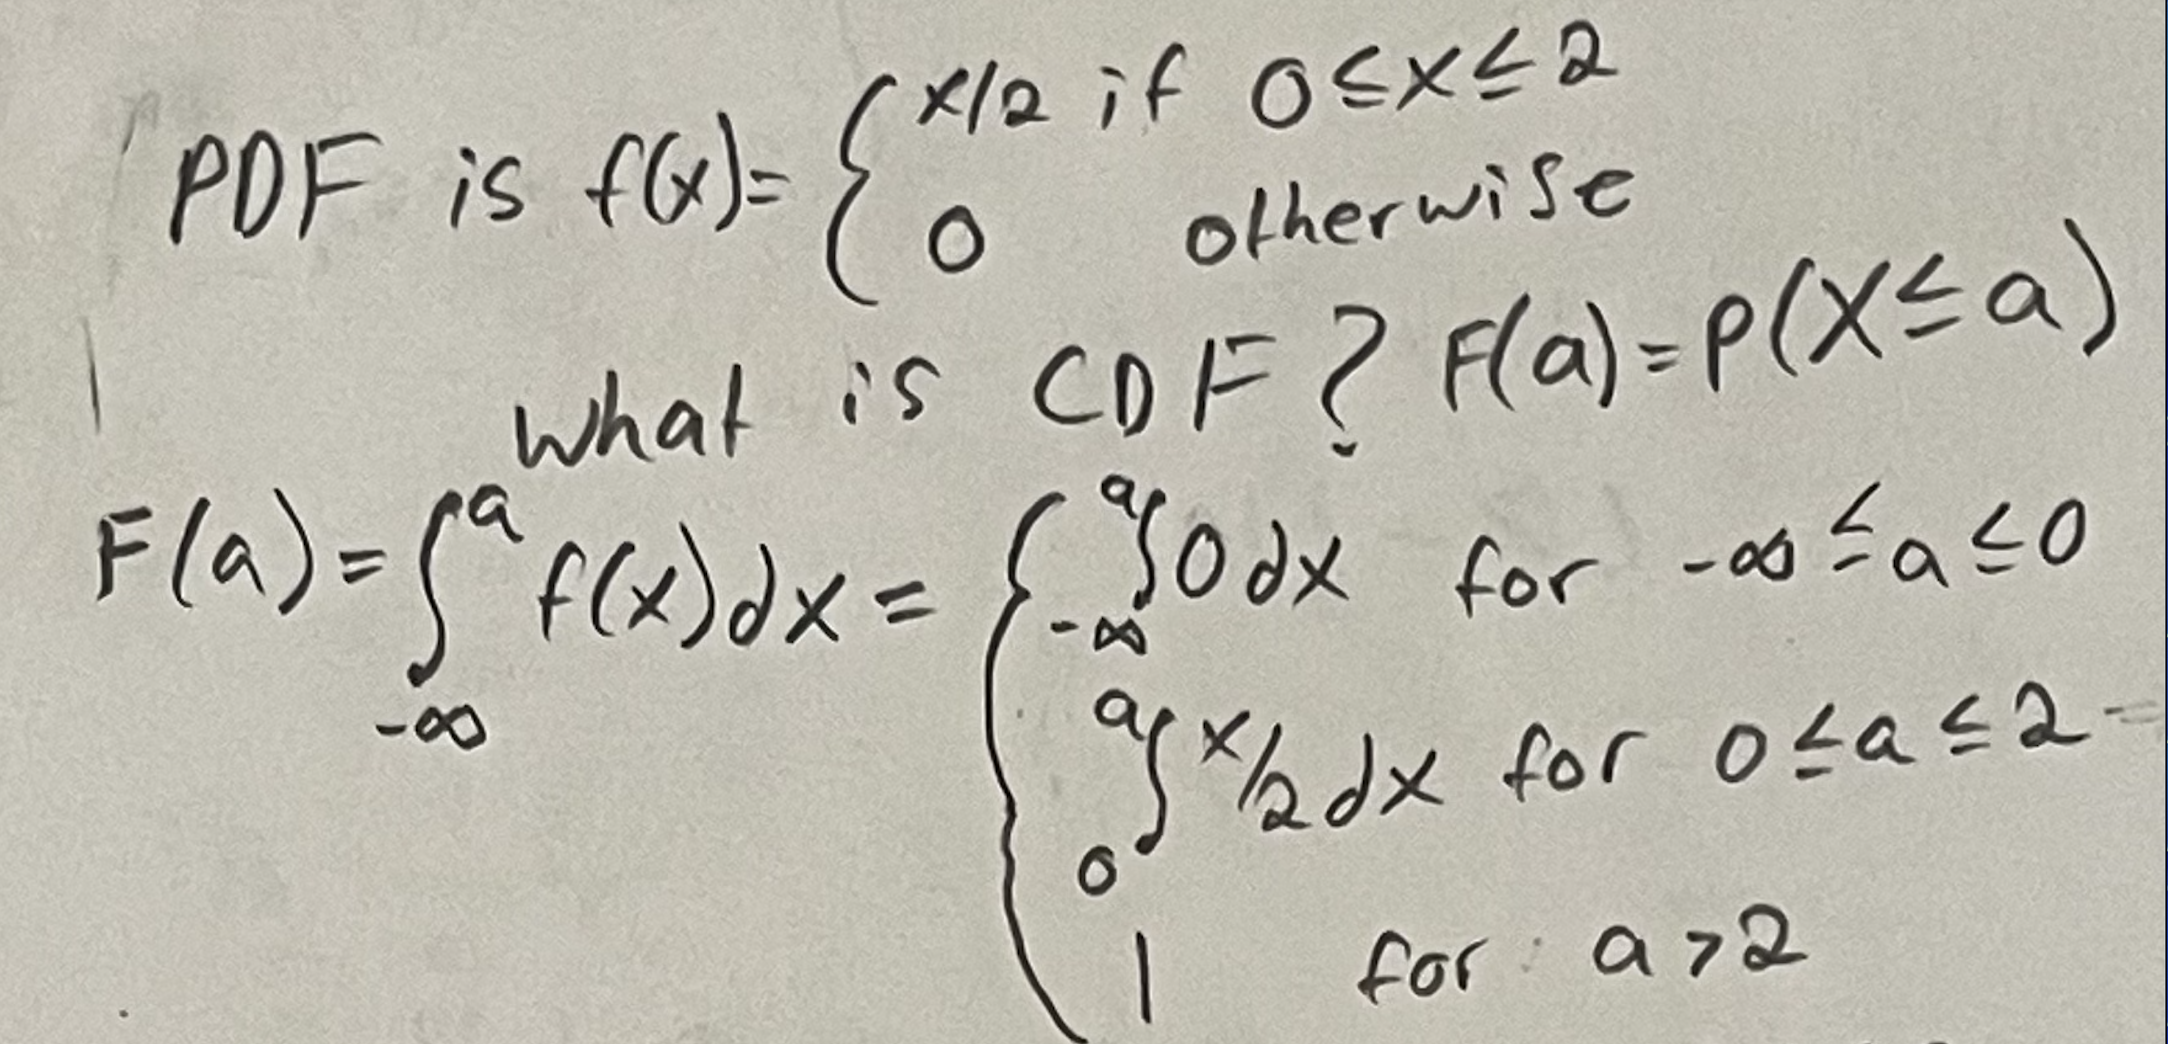 PDF is f(x)= { x/2 if 0≤x≤2
0 otherwise
What is CDF? F(a)=P(X≤a)
F(a)=∫_{-∞}^{a} f(x)dx = { ∫_{-∞}^{a} 0dx for -∞≤a≤0
∫_{0}^{a} x/2 dx for 0≤a≤2
1 for a>2